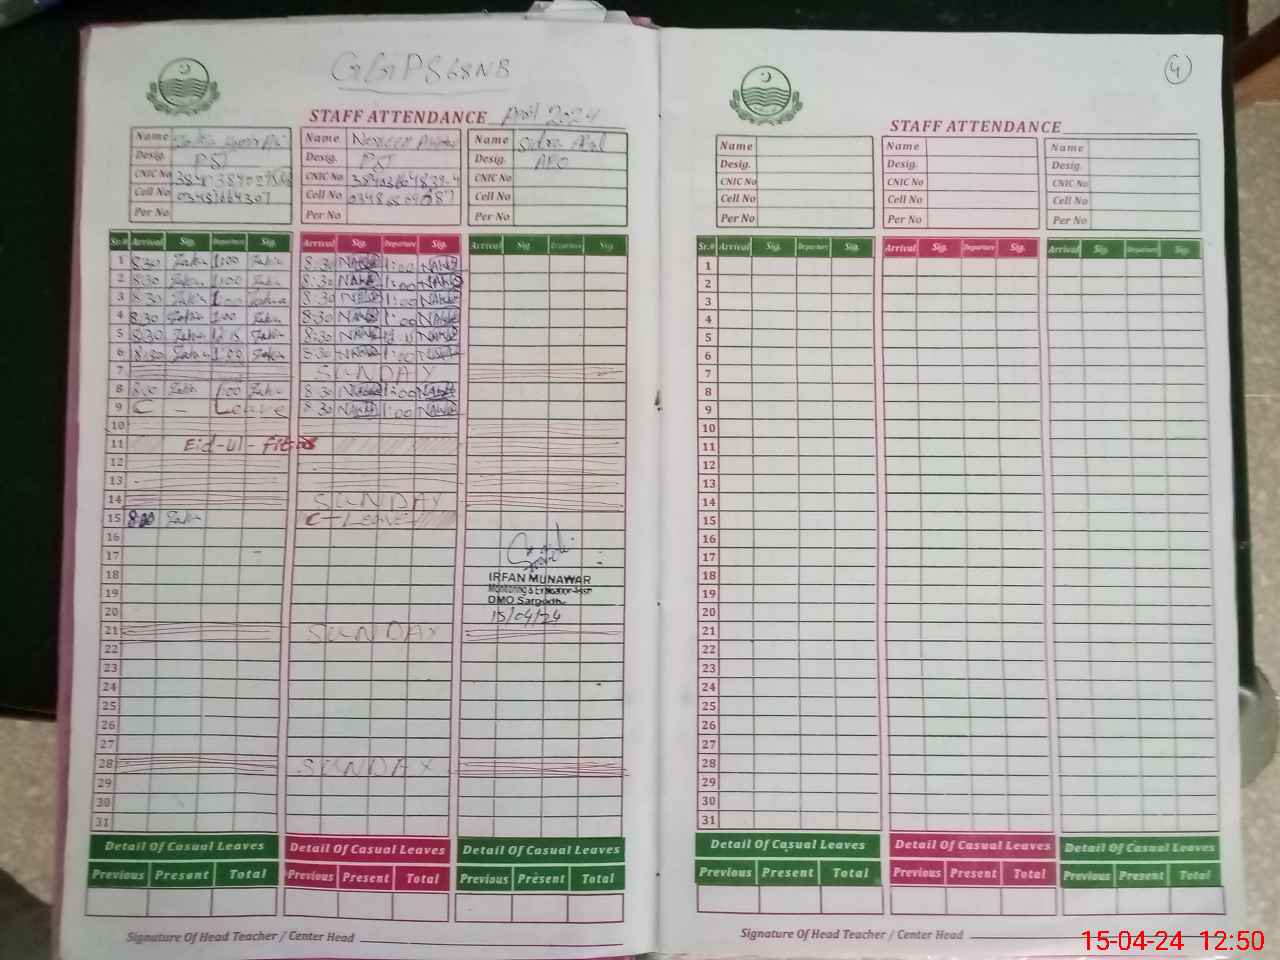 GGPS 68NB
STAFF ATTENDANCE April 2024
Name
Desig. PST
CNIC No
Cell No
Per No
Name Nasreen
Desig. PST
CNIC No
Cell No
Per No
Name Sidra
Desig. AEO
CNIC No
Cell No
Per No
Sr.# Arrival Sig. Departure Sig. Arrival Sig. Departure Sig. Arrival Sig. Departure Sig.
1 8:30 1:00 8:30 1:00
2 8:30 1:00 8:30 1:00
3 8:30 1:00 8:30 1:00
4 8:30 1:00 8:30 1:00
5 8:30 12:15 8:30
6 8:30 1:00 8:30 1:00
7 SUNDAY
8 1:00 8:30 1:00
9 C - Leave 8:30 1:00
10
11 Eid-ul-Fitr
12
13
14 SUNDAY
15 8:00 C-LEAVE
16
17
18
19
20
21 SUNDAY
22
23
24
25
26
27
28 SUNDAY
29
30
31
IRFAN MUNAWAR
Monitoring & Evaluation Asstt
DMO Sargodha
15/04/24
Detail Of Casual Leaves Detail Of Casual Leaves Detail Of Casual Leaves
Previous Present Total Previous Present Total Previous Present Total
Signature Of Head Teacher / Center Head
4
STAFF ATTENDANCE
Name
Desig.
CNIC No
Cell No
Per No
Name
Desig.
CNIC No
Cell No
Per No
Name
Desig.
CNIC No
Cell No
Per No
Sr.# Arrival Sig. Departure Sig. Arrival Sig. Departure Sig. Arrival Sig. Departure Sig.
1
2
3
4
5
6
7
8
9
10
11
12
13
14
15
16
17
18
19
20
21
22
23
24
25
26
27
28
29
30
31
Detail Of Casual Leaves Detail Of Casual Leaves Detail Of Casual Leaves
Previous Present Total Previous Present Total Previous Present Total
Signature Of Head Teacher / Center Head
15-04-24 12:50